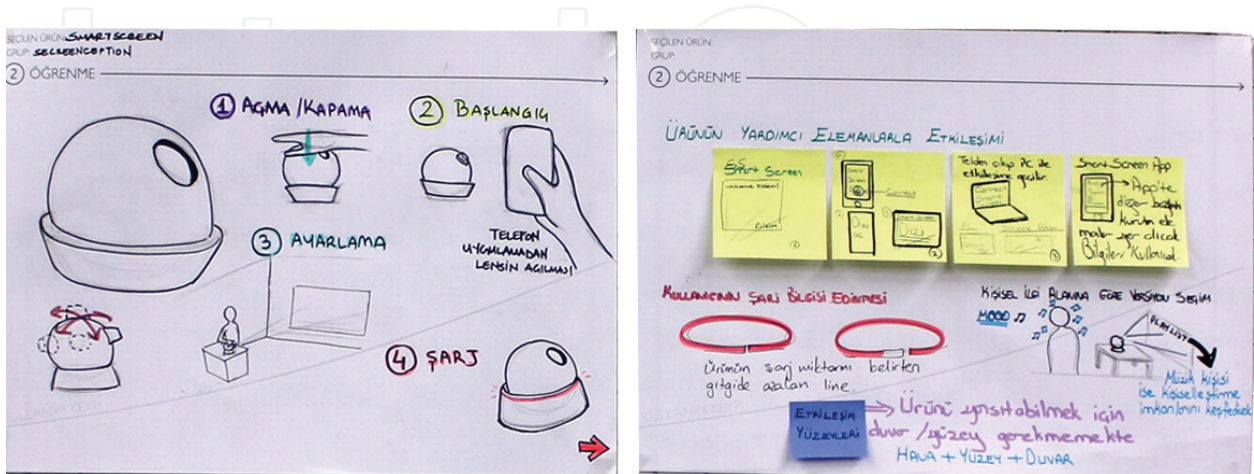 SEÇİLEN ÜRÜN: SMARTSCREEN
GRUP: SCREENCEPTION
2 ÖĞRENME
1 AÇMA / KAPAMA
2 BAŞLANGIÇ
TELEFON
UYGULAMADAN
LENSİN AÇILMASI
3 AYARLAMA
4 ŞARJ
KULLANIM KEYFİ
SEÇİLEN ÜRÜN:
GRUP:
2 ÖĞRENME
ÜRÜNÜN YARDIMCI ELEMANLARLA ETKİLEŞİMİ
Smart Screen
1
Smart
Screen
Connect
2
Telden çıkıp PC ile
etkileşime geçilir.
Connect
3
Smart Screen App
App'te
Bilgiler Kullanıcak.
KULLANICININ ŞARJ BİLGİSİ EDİNMESİ
Ürünün şarj miktarını belirten
gitgide azalan line.
KİŞİSEL İLGİ ALANINA GÖRE VERSİYON SEÇİM
MOOD
PLAYLIST
Müzik kişisi
ise kişiselleştirme
imkanlarını keşfedecek
ETKİLEŞİM
YÜZEYLERİ
Ürünü yansıtabilmek için
duvar / yüzey gerekmemekte
HAVA + YÜZEY + DUVAR
KULLANIM KEYFİ